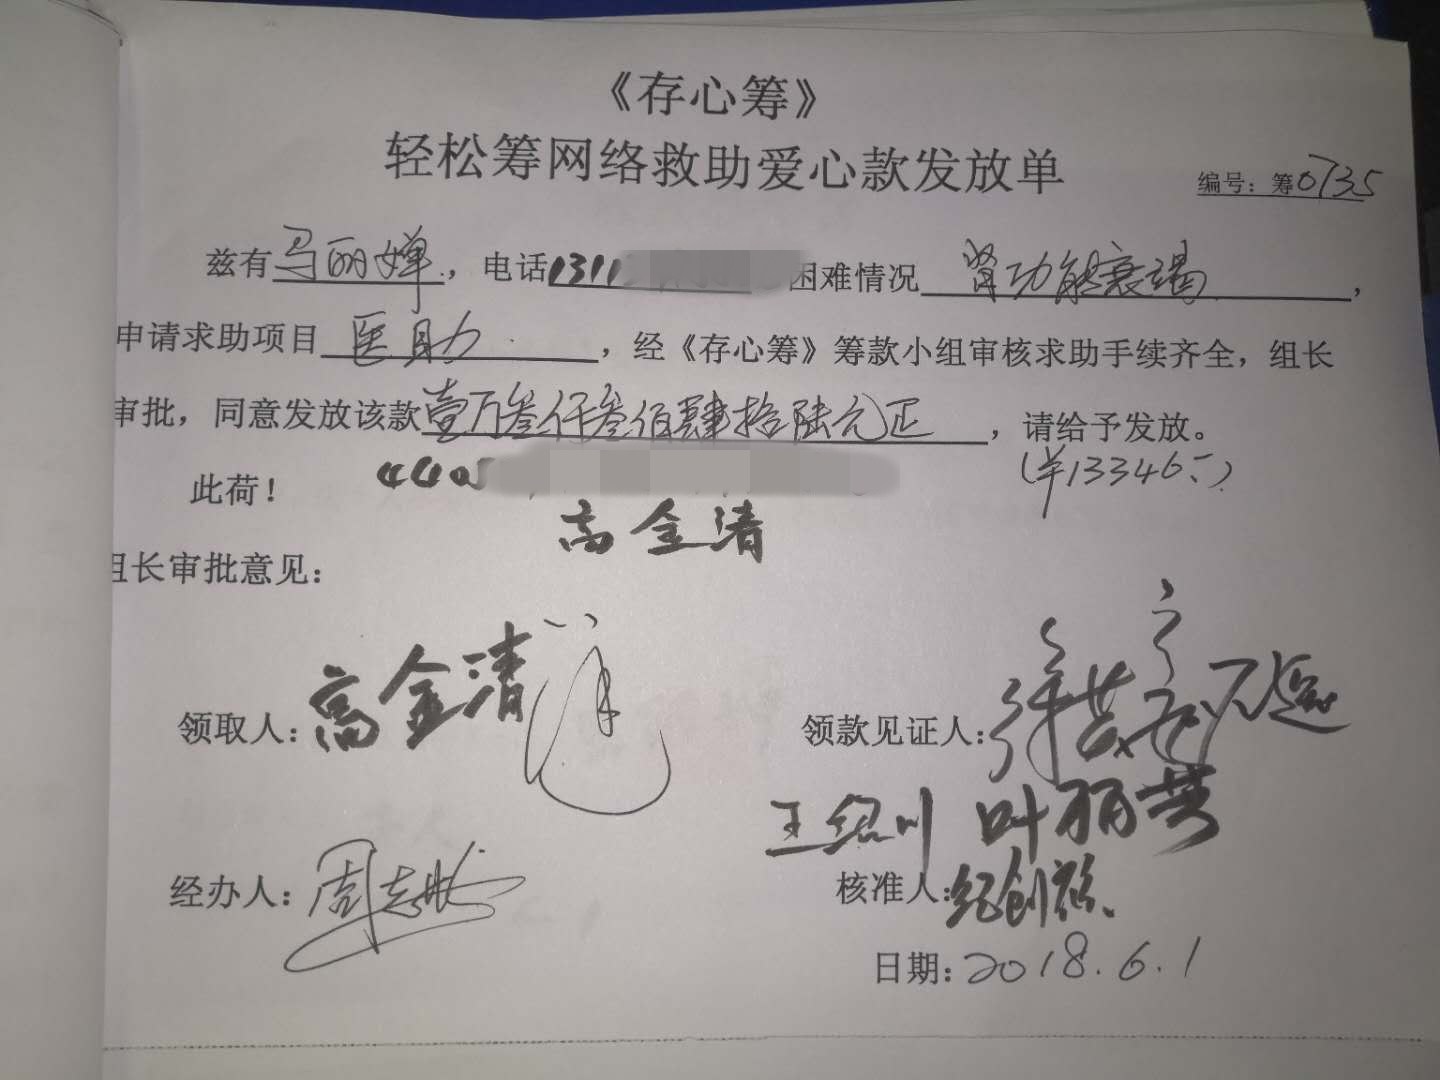 《存心筹》
轻松筹网络救助爱心款发放单
编号：筹0735
兹有马丽婵，电话1311 困难情况肾功能衰竭，
申请求助项目医助，经《存心筹》筹款小组审核求助手续齐全，组长
审批，同意发放该款壹万叁仟叁佰肆拾陆元正，请给予发放。
此荷！ 4405 (￥13346.-)
高金清
组长审批意见：
领取人：高金清 领款见证人：
王绍川 叶丽英
经办人： 核准人：纪创裕
日期：2018.6.1